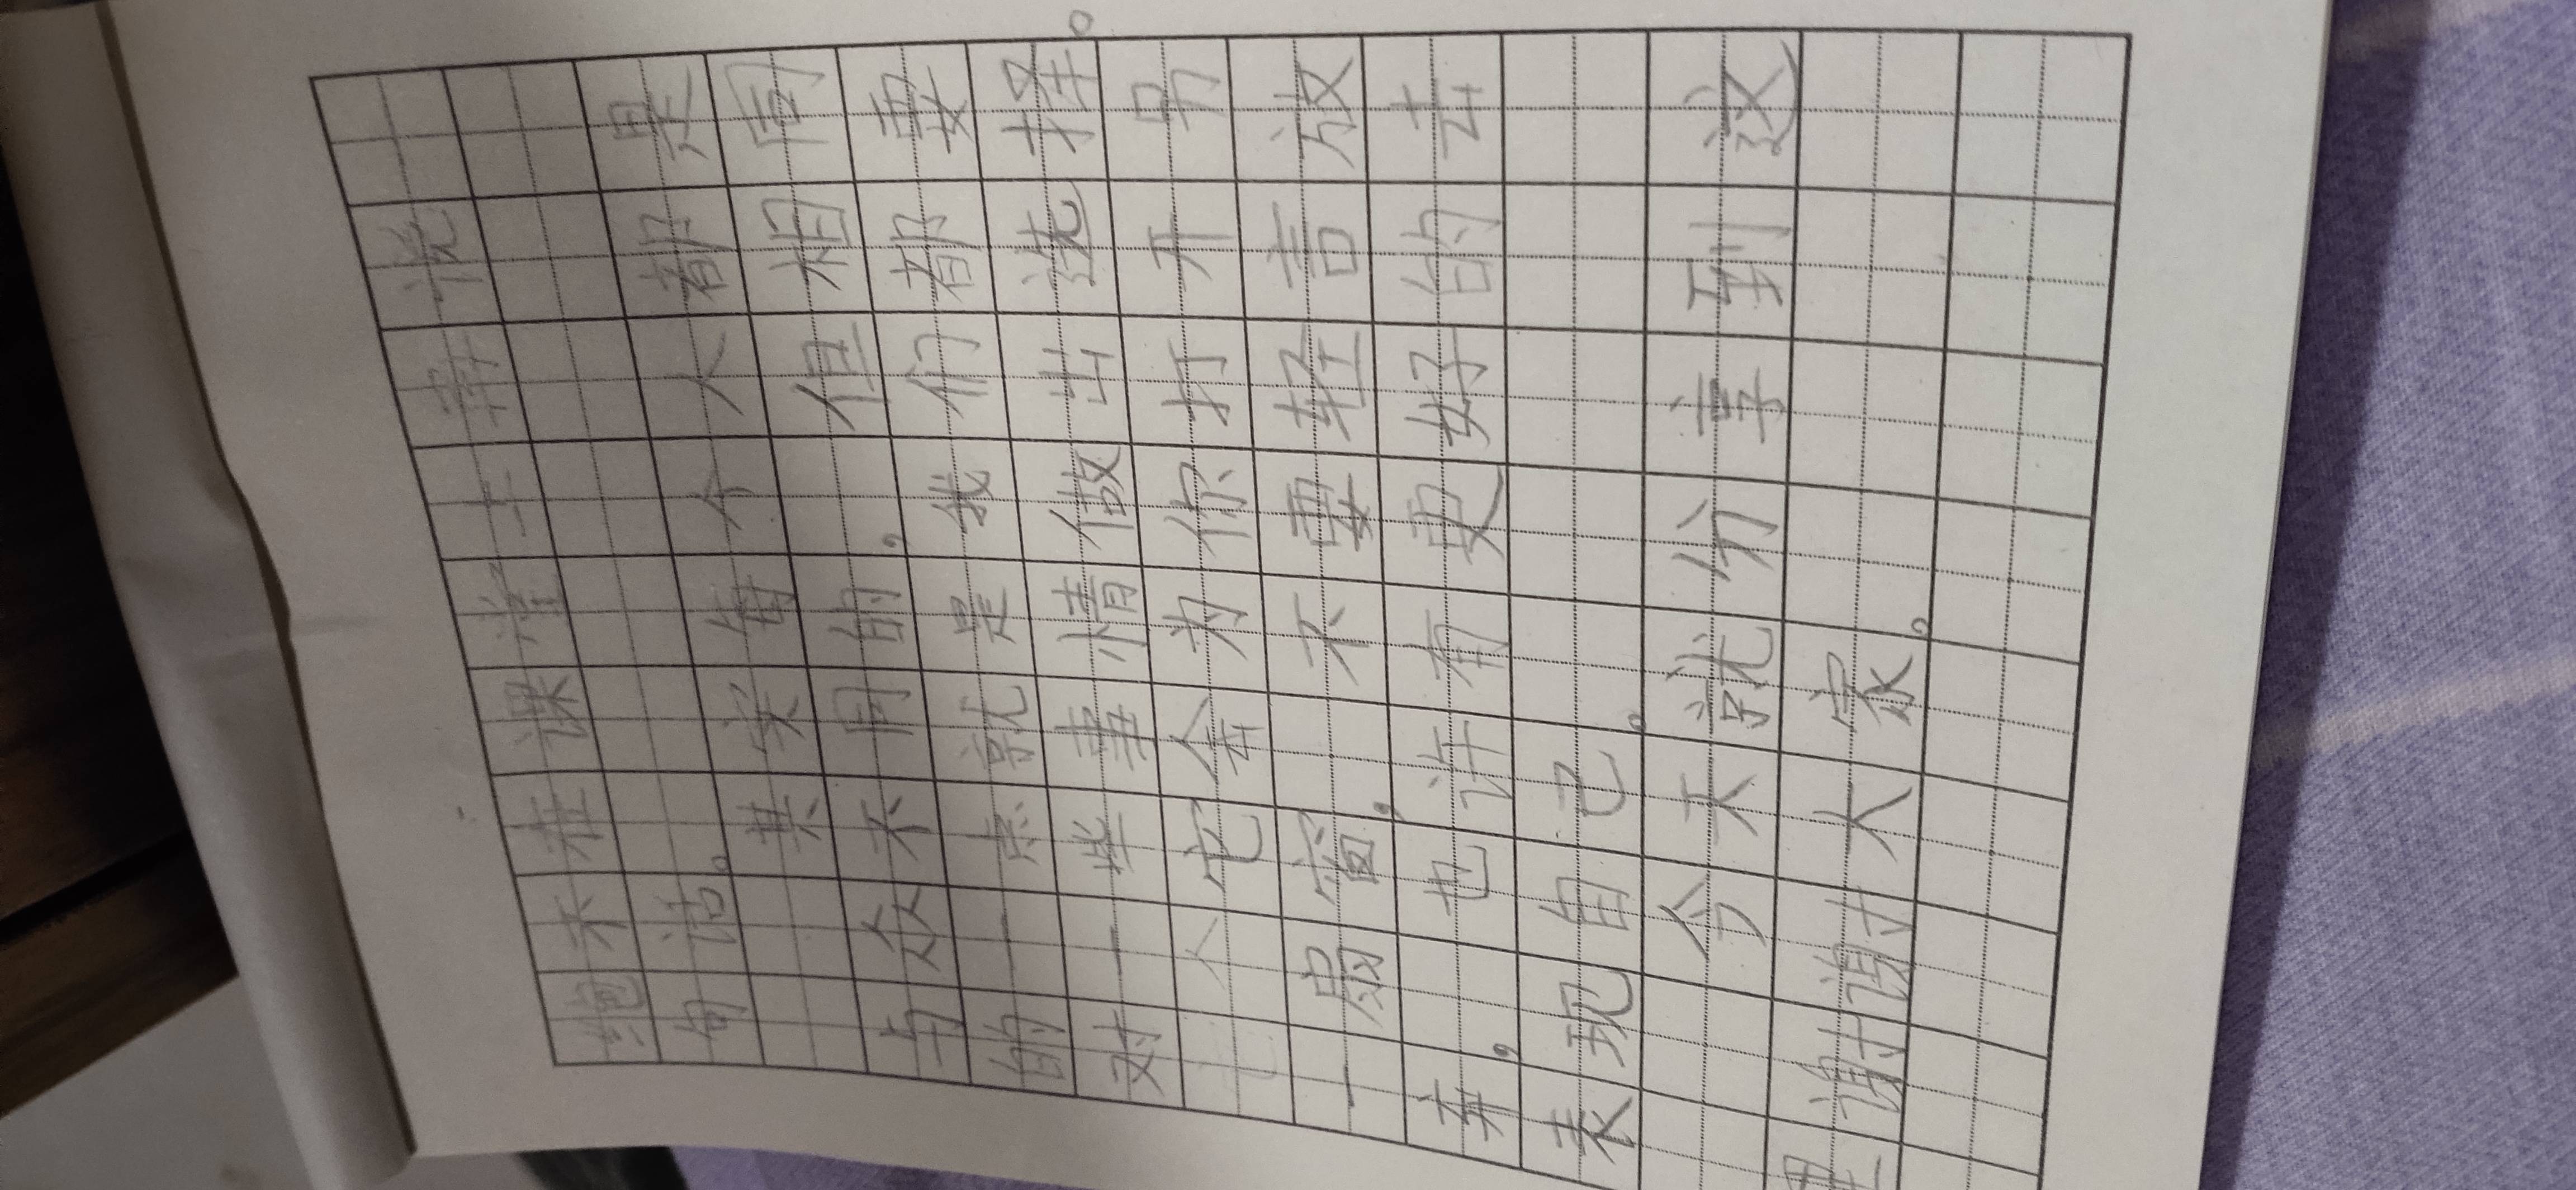 绝不在课堂上讲说
句话。
其实每个人都是
与众不同的,但相同
的一点就是我们都要
对一些事情做出选择。
它会为你打开另
一扇窗,不要轻言放
弃,也许有更好的去
表现自己。
今天就分享到这
里谢谢大家。